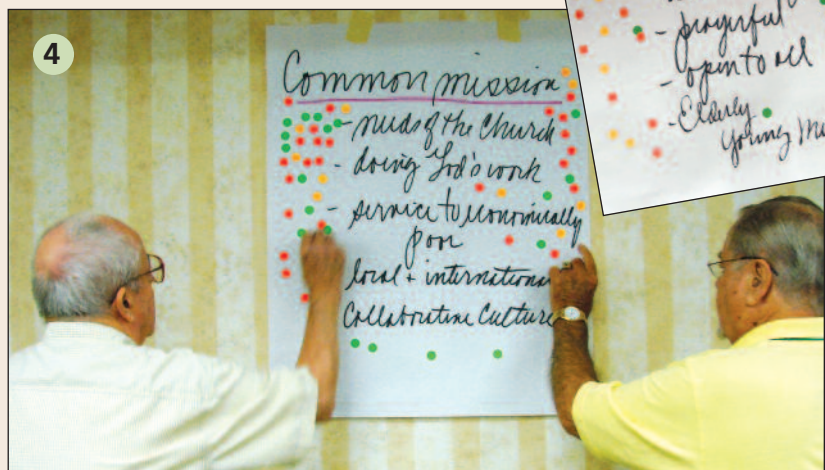 4
Common mission
- needs of the Church
- doing God's work
- service to economically
poor
local + international
Collaborative Culture
- prayerful
- open to all
- Elderly
young